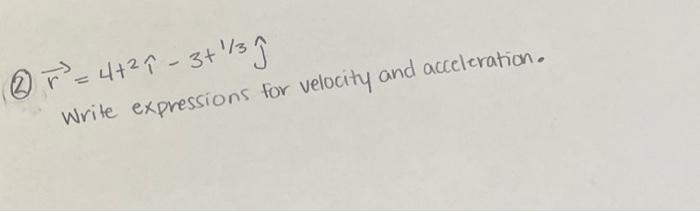 ② r⃗ = 4t² î - 3t^1/3 ĵ
Write expressions for velocity and acceleration.